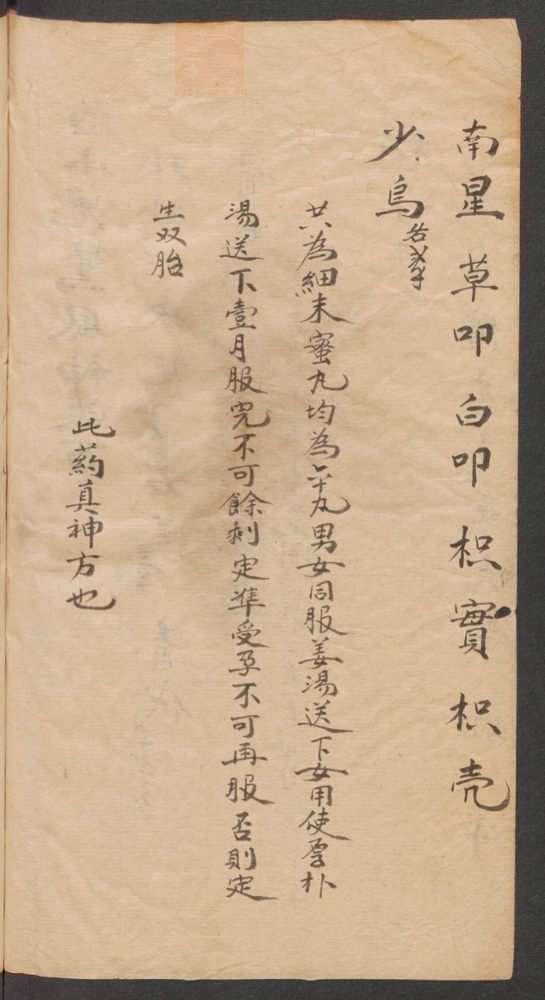 南星 草叩 白叩 枳實 枳壳
少烏 各
共為細末蜜丸均為 丸男女同服姜湯送下女用使厚朴
湯送下壹月服完不可餘剩定準受孕不可再服否則定
生双胎
此葯真神方也